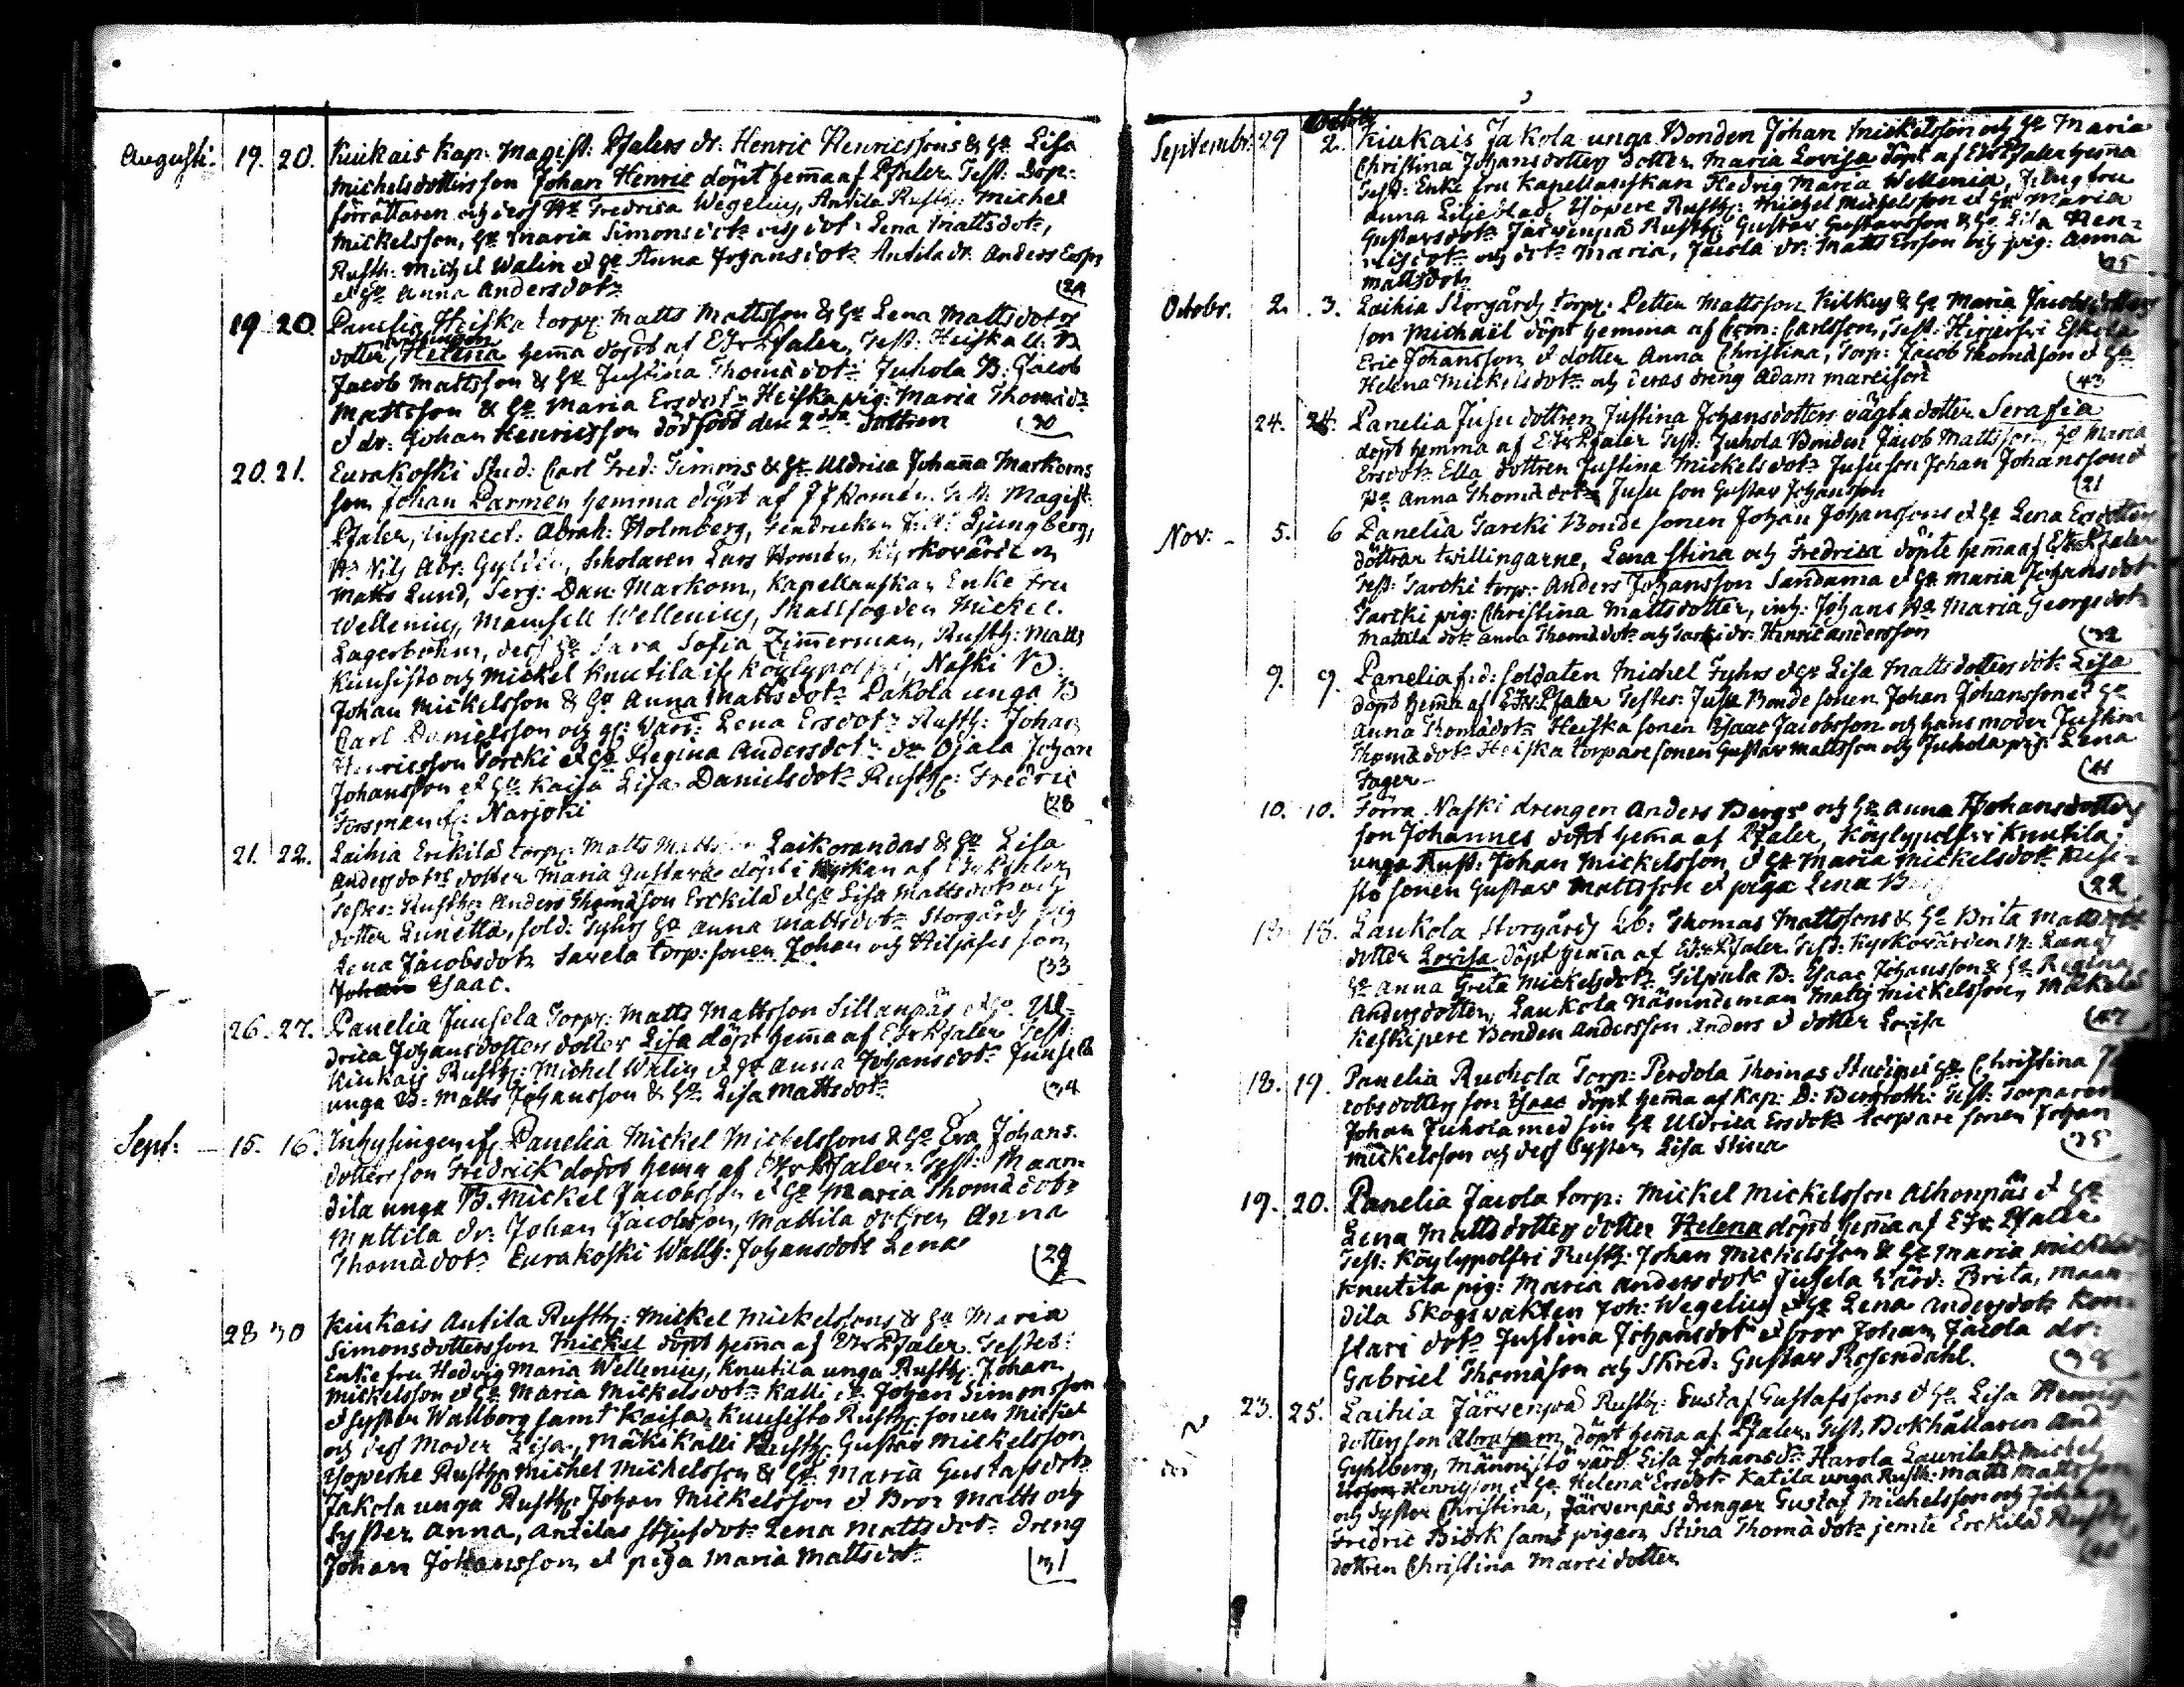 Augusti. 19. 20. Kiukais Kap: Magist: Pfalers dr: Henric Henricssons & Ho Lisa
Michelsdotters son Johan Henric döpt hema af Pfaler Test: Döp:
förrättaren och dess Ho Fredrica Wegelius, Antila Rusth: Michel
Mickelsson, Ho Maria Simonsdotr och dotr Lena Mattsdotr,
Rusth: Michel Walin et Ho Anna Johansdotr Antila dr. Anders Ersson
et Ho Anna Andersdotr
19 20. Panelia Heiska torp: Matts Mattsson & Ho Lena Mattsdotrs
dotter Helena hema döpt af Pfaler, Test: Heiska B
Jacob Mattsson & Ho Justina Thomædotr Juhola B: Jacob
Mattsson & Ho Maria Ersdotr Heiska pig: Maria Thomædr
et dr: Johan Henricsson dödfödd den 2dra dottren (30
20. 21. Eurakoski Stud: Carl Fred: Timms & Ho Uldrica Johana Markoms
son Johan Parmen hemma döpt af Homén. Test: Magist:
Pfaler, inspect: Abrah: Holmberg, Ljungberg,
Hr Nils Abr: Gyldén, Scholaren Lars Homén, kyrkovärden
Matts Lund, Serg: Dan: Markom, Kapellanskan Enke Fru
Wellenius, Mamsell Wellenius, Skallfogden Mickel
Lagerbohm, dess Ho Sara Sofia Zimerman, Rusth: Matts
Kuusisto och Mickel Knutila if Köylypolfvi, Naski B:
Johan Mickelsson & Ho Anna Mattsdotr Pakola unga B
Carl Danielsson och Lena Ersdotr Rusth: Johan
Henricsson Torcki et Ho Regina Andersdotr Ojala Johan
Johansson et Ho Kaisa Lisa Danielsdotr Rusth: Fredric
Forsman if: Narjoki (28
21. 22. Laihia Erckilä torp: Matts Laikorandas & Ho Lisa
Andersdotrs dotter Maria Gustava döpt i kyrkan af
Testes: Rusth: Anders Thomæson Erckilä et Ho Lisa Mattsdotr och
dotter Lunetta, sold: Fyhrs Ho Anna Mattsdotr Storgårds pig
Lena Jacobsdotr Savela torp: sonen Johan och Hiljases son
Isaac. (33
26. 27. Panelia Juusela Torp: Matts Mattsson Sillanpäs et Ho Ul-
drica Johansdotters dotter Lisa döpt hema af Pfaler Test:
Kiukais Rusth: Michel Walin et Ho Anna Johansdotr Juusela
unga B: Matts Johansson & Ho Lisa Mattsdotr (34
Sept: 15. 16. Inhysingen if Panelia Mickel Mickelssons & Ho Eva Johans-
dotters son Fredrick döpt hema af Pfaler. Test: Maan-
dila unga B. Mickel Jacobsson et Ho Maria Thomædotr
Mattila dr: Johan Jacobsson, Mattila dottren Anna
Thomædotr Eurakoski Wallb: Johansdotr Lena (29
28 30 Kiukais Antila Rusth: Mickel Mickelssons & Ho Maria
Simonsdottersson Mickel döpt hema af Pfaler. Testes:
Enke fru Hedvig Maria Wellenius, Knutila unga Rusth: Johan
Mickelsson et Ho Maria Mickelsdotr Kalli dr Johan Simonsson
et Syster Wallborg samt Kaisa, Kuusisto Rusth: sonen Mickel
och dess Moder Lisa, Mäkikalli Rusth: Gustav Mickelsson
Yoperhe Rusth: Michel Mickelsson & Ho Maria Gustafsdotr
Jäkola unga Rusth: Johan Mickelsson et Bror Matts och
Syster Anna, Antilas Stjufdotr Lena Mattsdotr dreng
Johan Johansson, et piga Maria Mattsdotr (31
Septembr: 29 2. Kiukais Jakola unga Bonden Johan Mickelsson och Ho Maria
Christina Johansdotters dotter Maria Lovisa döpt af Pfaler hema
Test: Enke fru Kapellanskan Hedvig Maria Wellenia, fru
Anna Liljeblad, Yopere Rusth: Michel Michelsson et Ho Maria
Gustavsdotr Järvenpä Rusth: Gustav Gustavsson & Ho Lisa Hen-
och dotr Maria, Jacola dr: Matts Ersson och pig: Anna
Mattsdotr
Octobr. 2. 3. Laihia Storgårds torp: Petter Mattsson Kilkus & Ho Maria Jacobsdotters
son Michaël döpt hemma af Com: Carlsson, Test: Eskola
Eric Johansson et dotter Anna Christina, Torp: Jacob Thomæson et Ho
Helena Mickelsdotr och deras dreng Adam Marcisson (43
24. 24. Panelia Jusu dottren Justina Johansdotters oägta dotter Serafia
döpt hemma af Pfaler Test: Juhola Bonden Jacob Mattsson, Ho Maria
Ersdotr Ella dottren Justina Mickelsdotr Jusu son Johan Johansson &
Ho Anna Thomædotr Jusu son Gustav Johansson (21
Nov: 5. 6 Panelia Tarcki Bonde sonen Johan Johanssons et Ho Lena Ersdotters
döttrar twillingarne, Lena Stina och Fredrica döpte hema af Pfaler
Test: Tarcki torp: Anders Johansson Sandama et Ho Maria Johansdotr
Tarcki pig: Christina Mattsdotter, inh: Johans Ho Maria Georgsdotr
Mattila dotr Anna Thomædotr och Tarcki dr: Henric Andersson (32
9. 9. Panelia f: d: soldaten Michel Fyhrs et Ho Lisa Mattsdotters dotr Lisa
döpt hema af Pfaler Testes: Jusu Bonde sonen Johan Johansson et Ho
Anna Thomædotr Heiska sonen Isaac Jacobsson och hans moder Justina
Thomædotr Heiska torpare sonen Gustav Mattsson och Juhola pig: Lena
Fager (41
10. 10. Förra Naski drengen Anders Bergs och Ho Anna Johansdotters
son Johannes döpt hema af Pfaler, Köylypolfvi Knutila
unga Rust: Johan Mickelsson et Ho Maria Mickelsdotr Kusi-
sto sonen Gustav Mattsson et piga Lena (22
18. 18. Laukola Storgårds Thomas Mattssons & Ho Brita Mattsdotr
dotter Lovisa döpt hema af Pfaler Test: Kyrkovärden M: Lund
Ho Anna Greta Mickelsdotr Filpula B: Isaac Johansson & Ho Regina
Andersdotter, Laukola Nämndeman Matts Mickelsson, Mäkelä
Keskipere Bonden Andersson Anders et dotter Lovisa (47
18. 19. Panelia Ruohola Torp: Perdola Thomas et Ho Christina
cobsdotters son Isaac döpt hema af Kap: D: Bergroth: Test: Torparen
Johan Juhola med sin Ho Uldrica Ersdotr torpare sonen Johan
Mickelsson och dess Syster Lisa Stina (35
19. 20. Panelia Jacola torp: Mickel Mickelsson Alhonpäs et Ho
Lena Mattsdotters dotter Helena döpt hema af Pfaler
Test: Köylypolfvi Rusth: Johan Mickelsson & Ho Maria
Knutila pig: Maria Andersdotr Jusela Wärd: Brita, Maan-
dila Skogsvakten Joh: Wegelius et Ho Lena Andersdotr Kon-
stari dotr Justina Johansdotr et bror Johan, Jacola dr:
Gabriel Thomæson och Skred: Gustav Rosendahl. (38
23. 25. Laihia Järvenpä Rusth: Gustaf Gustafssons et Ho Lisa
dotters son Abraham döpt hema af Pfaler, Test, Bokhållaren And
Gyhlberg, Männistö värd: Lisa Johansdr Harola Laurila Michel
Henrigson et Ho Helena Ersdotr Katila unga Rusth: Matts Mattsson
och Syster Christina, Järvenpäs drengar Gustaf Michelsson och Johan
Fredric Biörk samt pigan Stina Thomædotr jemte Erckilä
dottren Christina Marcidotter